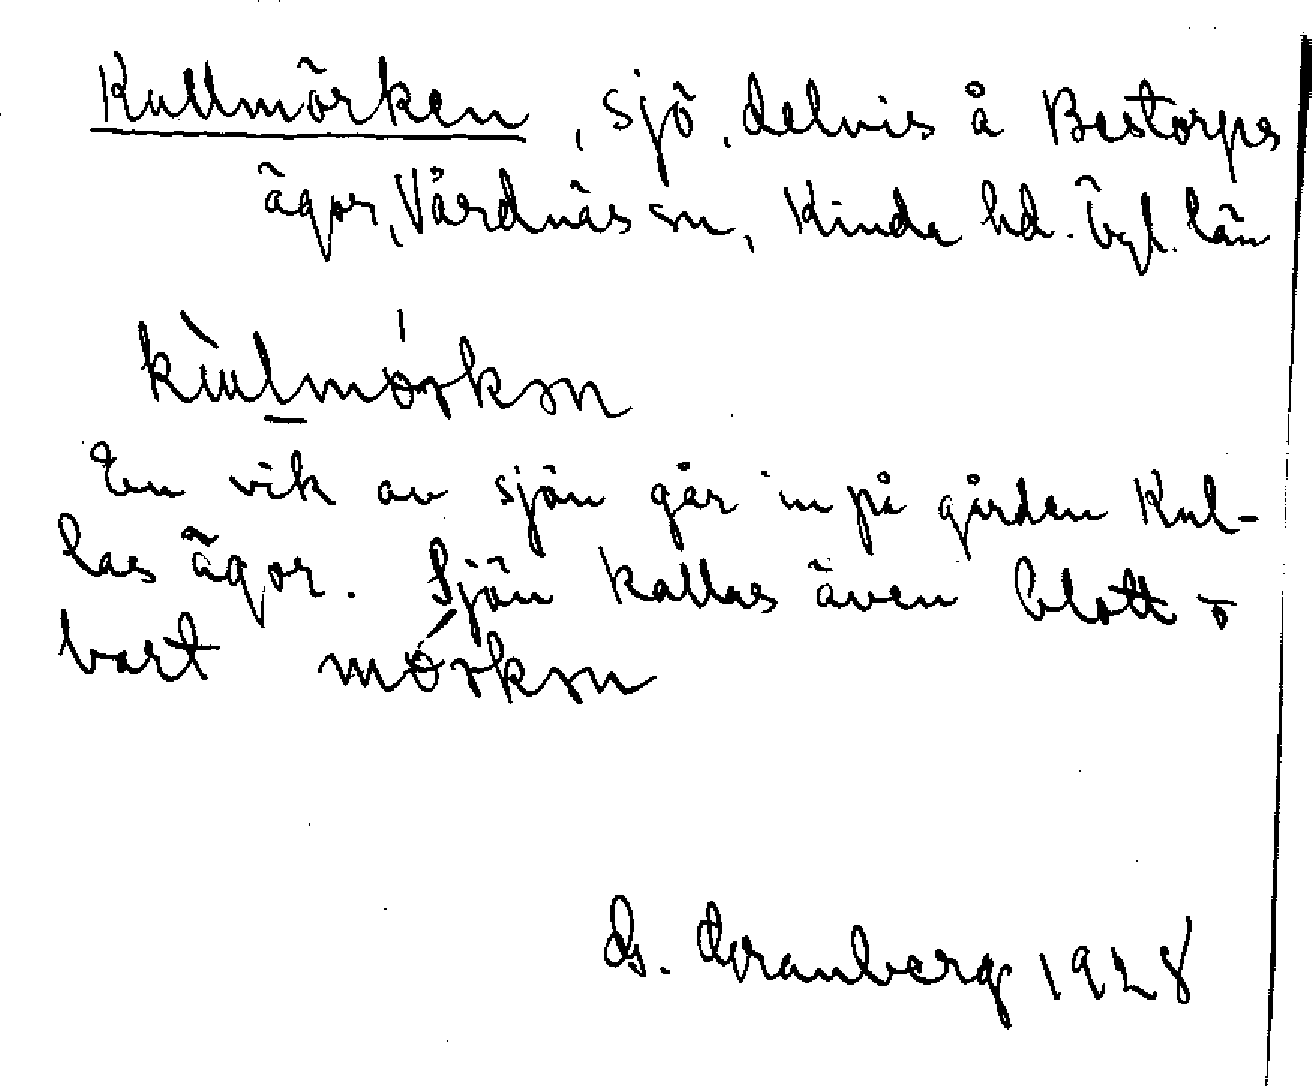 Kullmörken, sjö, delvis å Bestorps
ägor, Vårdnäs sn, Kinda hd. Ögl. län
kùlmórkən
En vik av sjön går in på gården Kul-
las ägor. Sjön kallas även blott o
bart mórkən
G. Granberg 1928